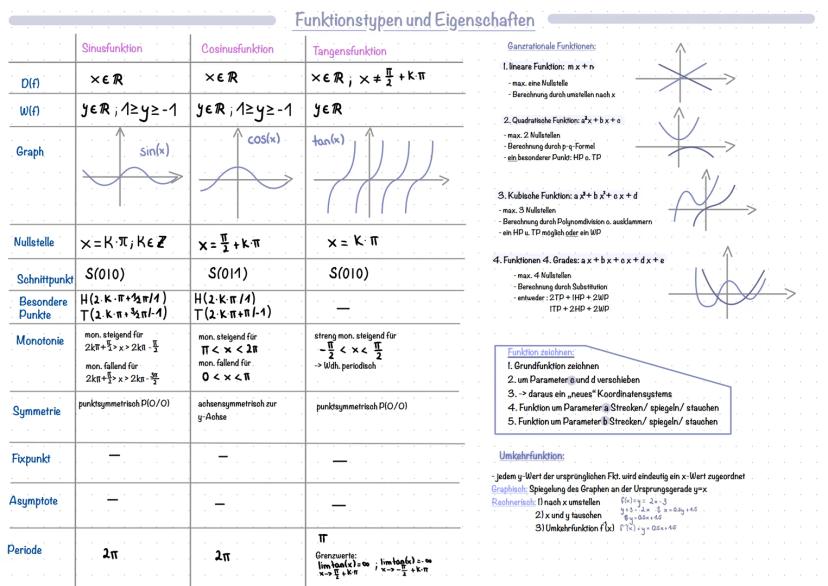 Funktionstypen und Eigenschaften
Sinusfunktion Cosinusfunktion Tangensfunktion
D(f) x∈ℝ x∈ℝ x∈ℝ ; x ≠ π/2 + K·π
W(f) y∈ℝ ; 1≥y≥-1 y∈ℝ ; 1≥y≥-1 y∈ℝ
Graph sin(x) cos(x) tan(x)
Nullstelle x=K·π; K∈ℤ x = π/2 + K·π x = K·π
Schnittpunkt S(0|0) S(0|1) S(0|0)
Besondere Punkte
H(2·K·π+½π/1) H(2·K·π/1) —
T(2·K·π+3/2π/-1) T(2·K·π+π/-1)
Monotonie
mon. steigend für
2kπ+π/2> x > 2kπ-π/2
mon. fallend für
2kπ+π/2> x > 2kπ-3π/2
mon. steigend für
π < x < 2π
mon. fallend für
0 < x < π
streng mon. steigend für
-π/2 < x < π/2
-> Wdh. periodisch
Symmetrie
punktsymmetrisch P(0/0)
achsensymmetrisch zur
y-Achse
punktsymmetrisch P(0/0)
Fixpunkt — — —
Asymptote — — —
Periode 2π 2π π
Grenzwerte:
lim tan(x)=∞ ; lim tan(x)=-∞
x→π/2+K·π x→-π/2+K·π
Ganzrationale Funktionen:
1. lineare Funktion: m x + n
- max. eine Nullstelle
- Berechnung durch umstellen nach x
2. Quadratische Funktion: a²x + b x + c
- max. 2 Nullstellen
- Berechnung durch p-q-Formel
- ein besonderer Punkt: HP o. TP
3. Kubische Funktion: a x³ + b x² + c x + d
- max. 3 Nullstellen
- Berechnung durch Polynomdivision o. ausklammern
- ein HP u. TP möglich oder ein WP
4. Funktionen 4. Grades: a x + b x + c x + d x + e
- max. 4 Nullstellen
- Berechnung durch Substitution
- entweder : 2TP + 1HP + 2WP
1TP + 2HP + 2WP
Funktion zeichnen:
1. Grundfunktion zeichnen
2. um Parameter c und d verschieben
3. -> daraus ein „neues" Koordinatensystems
4. Funktion um Parameter a Strecken/ spiegeln/ stauchen
5. Funktion um Parameter b Strecken/ spiegeln/ stauchen
Umkehrfunktion:
- jedem y-Wert der ursprünglichen Fkt. wird eindeutig ein x-Wert zugeordnet
Graphisch: Spiegelung des Graphen an der Ursprungsgerade y=x
Rechnerisch: 1) nach x umstellen f(x)=y = 2x-3
2) x und y tauschen
3) Umkehrfunktion f⁻(x)